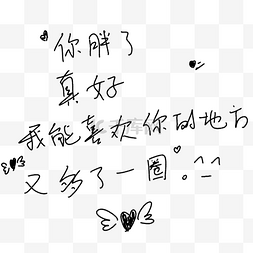 你胖了
真好
我能喜欢你的地方
又多了一圈。^_^